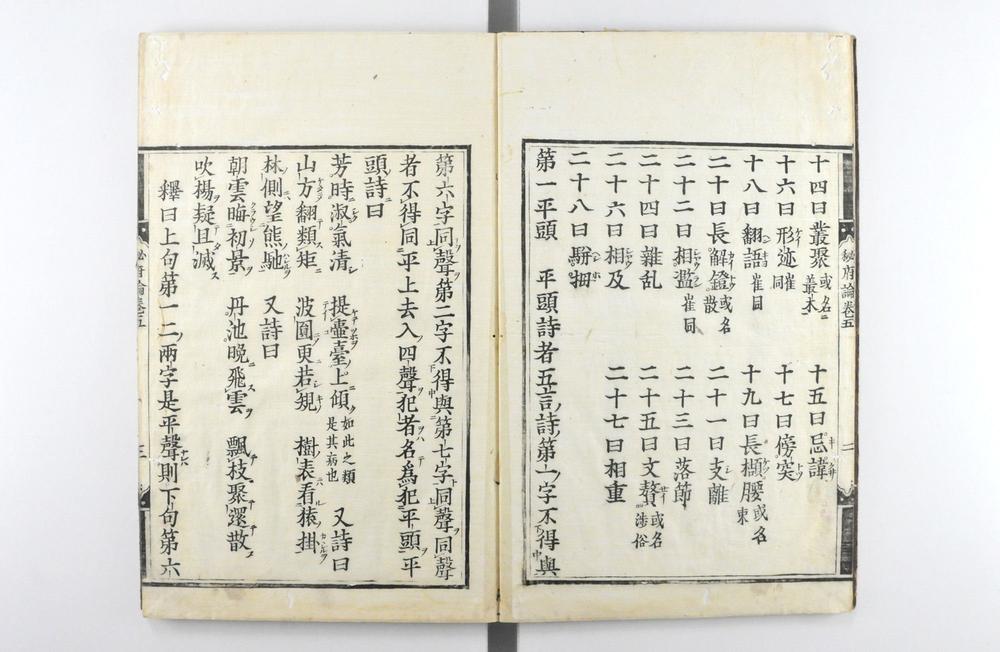 十四曰叢聚或名叢木 十五曰忌諱
十六曰形迹崔同 十七曰傍突
十八曰翻語崔同 十九曰長擷腰或名束
二十曰長解鐙或名散 二十一曰支離
二十二曰相濫崔同 二十三曰落節
二十四曰雜乱 二十五曰文贅或名涉俗
二十六曰相及 二十七曰相重
二十八曰駢拇
第一平頭 平頭詩者五言詩第一字不得與
第六字同聲第二字不得與第七字同聲同聲
者不得同平上去入四聲犯者名爲犯平頭平
頭詩曰
芳時淑氣清 提壺臺上傾如此之類是其病也 又詩曰
山方翻類矩 波圓更若規 樹表看猿掛
林側望熊馳 又詩曰
朝雲晦初景 丹池晚飛雲 飄枝聚還散
吹揚凝且滅
釋曰上句第一二兩字是平聲則下句第六
秘府論卷五 二
秘府論卷五 三